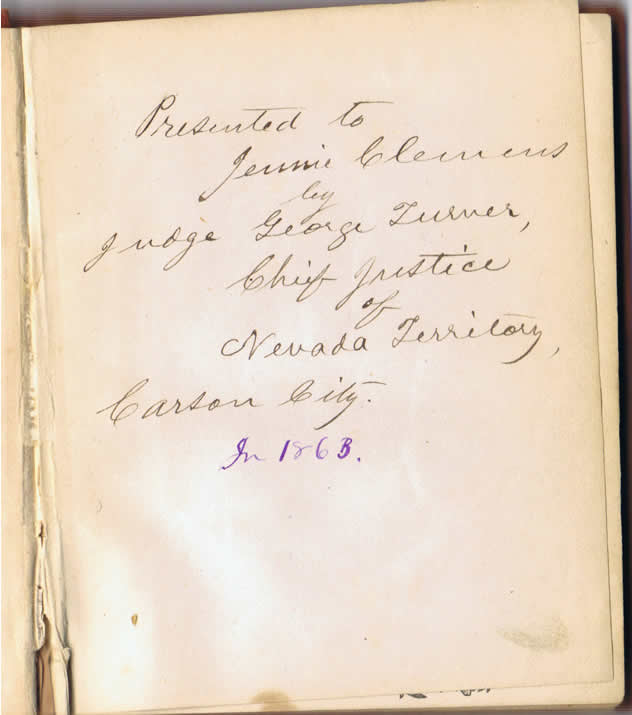 Presented to
Jennie Clemens
by
Judge George Turner,
Chief Justice
of
Nevada Territory,
Carson City.
In 1863.